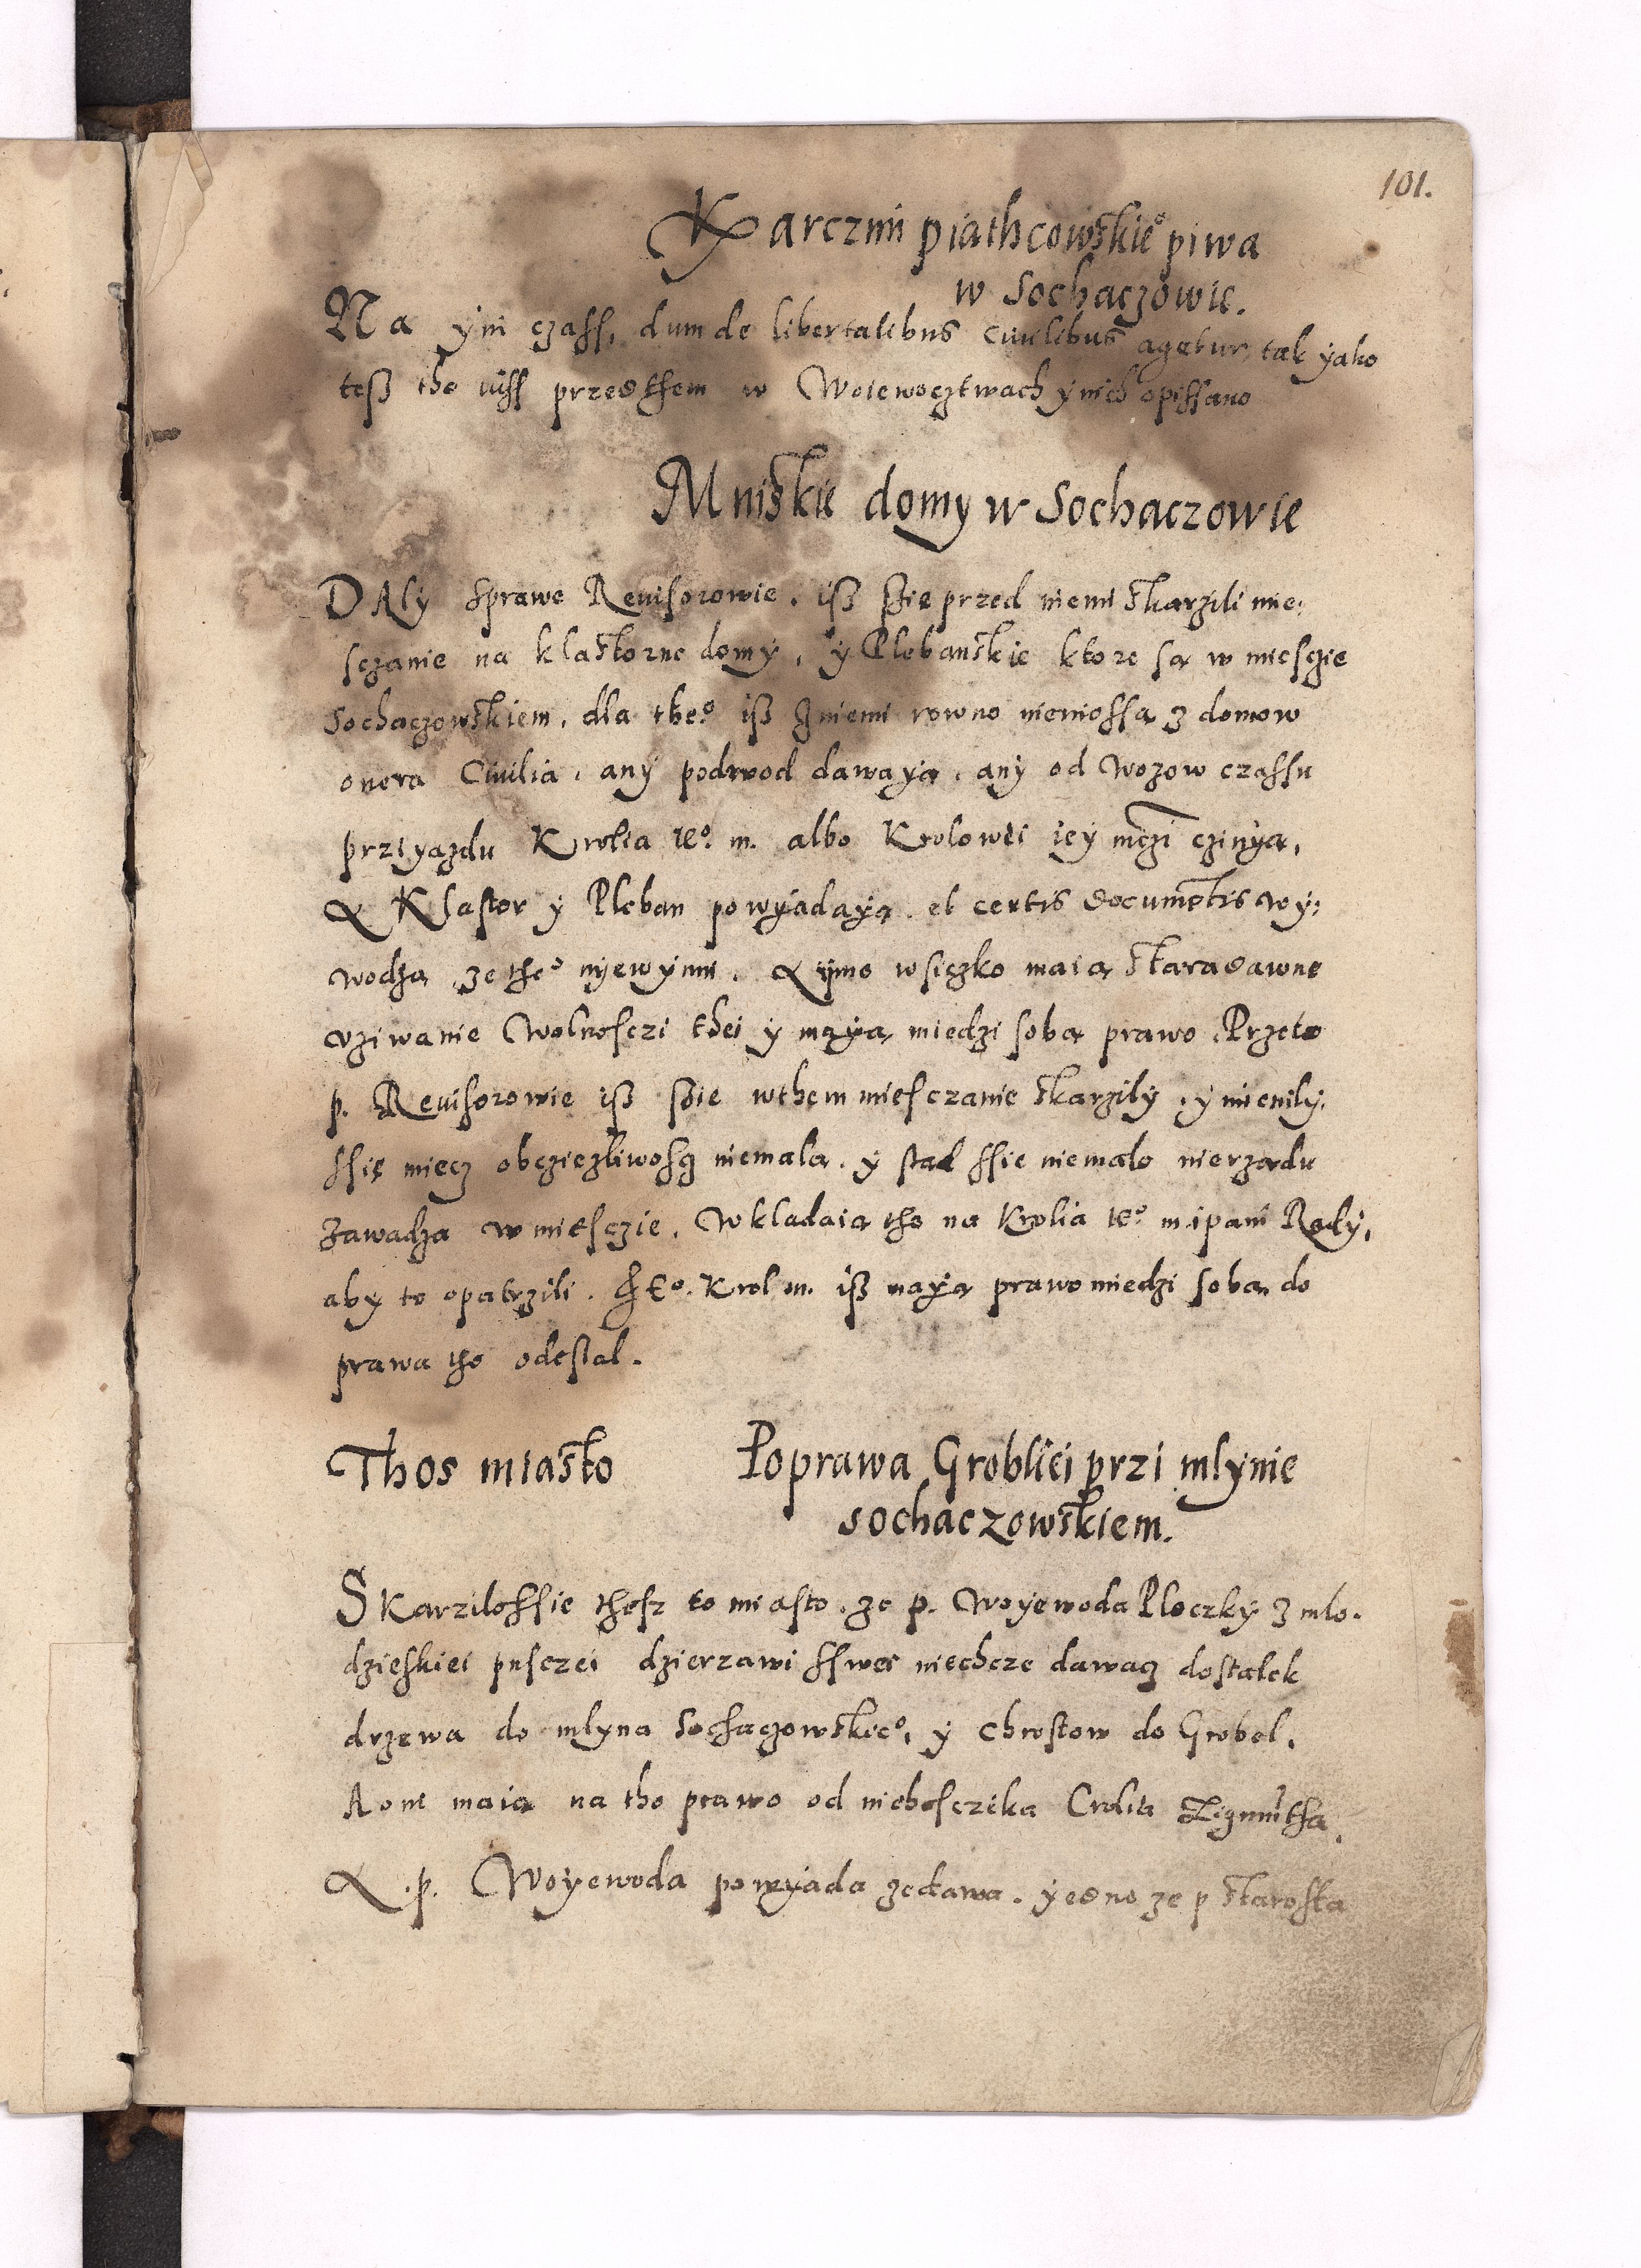 101.
Karczmi piathcowskie° piwa
w Sochaczowie.
Na ÿni czass, dum de libertatibus Ciuilibus agetur, tak ÿako
tesz tho iuss przedthem w Woiewocztwach ÿnich opissano
Mniskie domy w Sochaczowie
DAly sprawe Reuisorowie. isz szie przed niemi skarzili mie:
sczanie na klastorne domÿ, ÿ Plebanskie ktore są w miesczie
Sochaczowskiem, dla the° isz zniemi rowno nieniossą z domow
onera Ciuilia. anÿ podwod dawaÿą. anÿ od Wozow czassu
prziyazdu Krolia ie° m. albo Krolowei ieÿ mczi czinÿą,
A Klastor ÿ Pleban powÿadaÿą. et certis documentis wÿ:
wodzą ze the° nyewÿnni. A ymo wsiczko maią staradawne
vziwanie Wolnosczi thei y maÿą miedzi sobą prawo. Przeto
p. Reuisorowie isz szie wthem miesczanie skarzilÿ, ÿ mienilÿ,
ssię miecz obcziezliwoscz niemalą. ÿ stąd ssie niemalo nierządu
zawadza w miesczie. Wkladaią tho na Krolia ie° m. i pani Radÿ,
aby to opatrzili. Krol m. isz maÿą prawo miedzi sobą do
prawa tho odeslal.
Thos miasto
Poprawa Grobliei przi mlynie
sochaczowskiem.
Skarzilossie thesz to miasto. ze p. Woÿewoda Ploczkÿ z mlo.
dzieskiei pusczei dzierzawi sswei niechcze dawacz dostatek
drzewa do mlyna Sochaczowskie°, ÿ Chrostow do Grobel,
A oni maią na tho prawo od nieboszczika Crolia Zigmuntha,
A .p. Woÿewoda powÿada ze dawa. ÿedno ze p Starosta